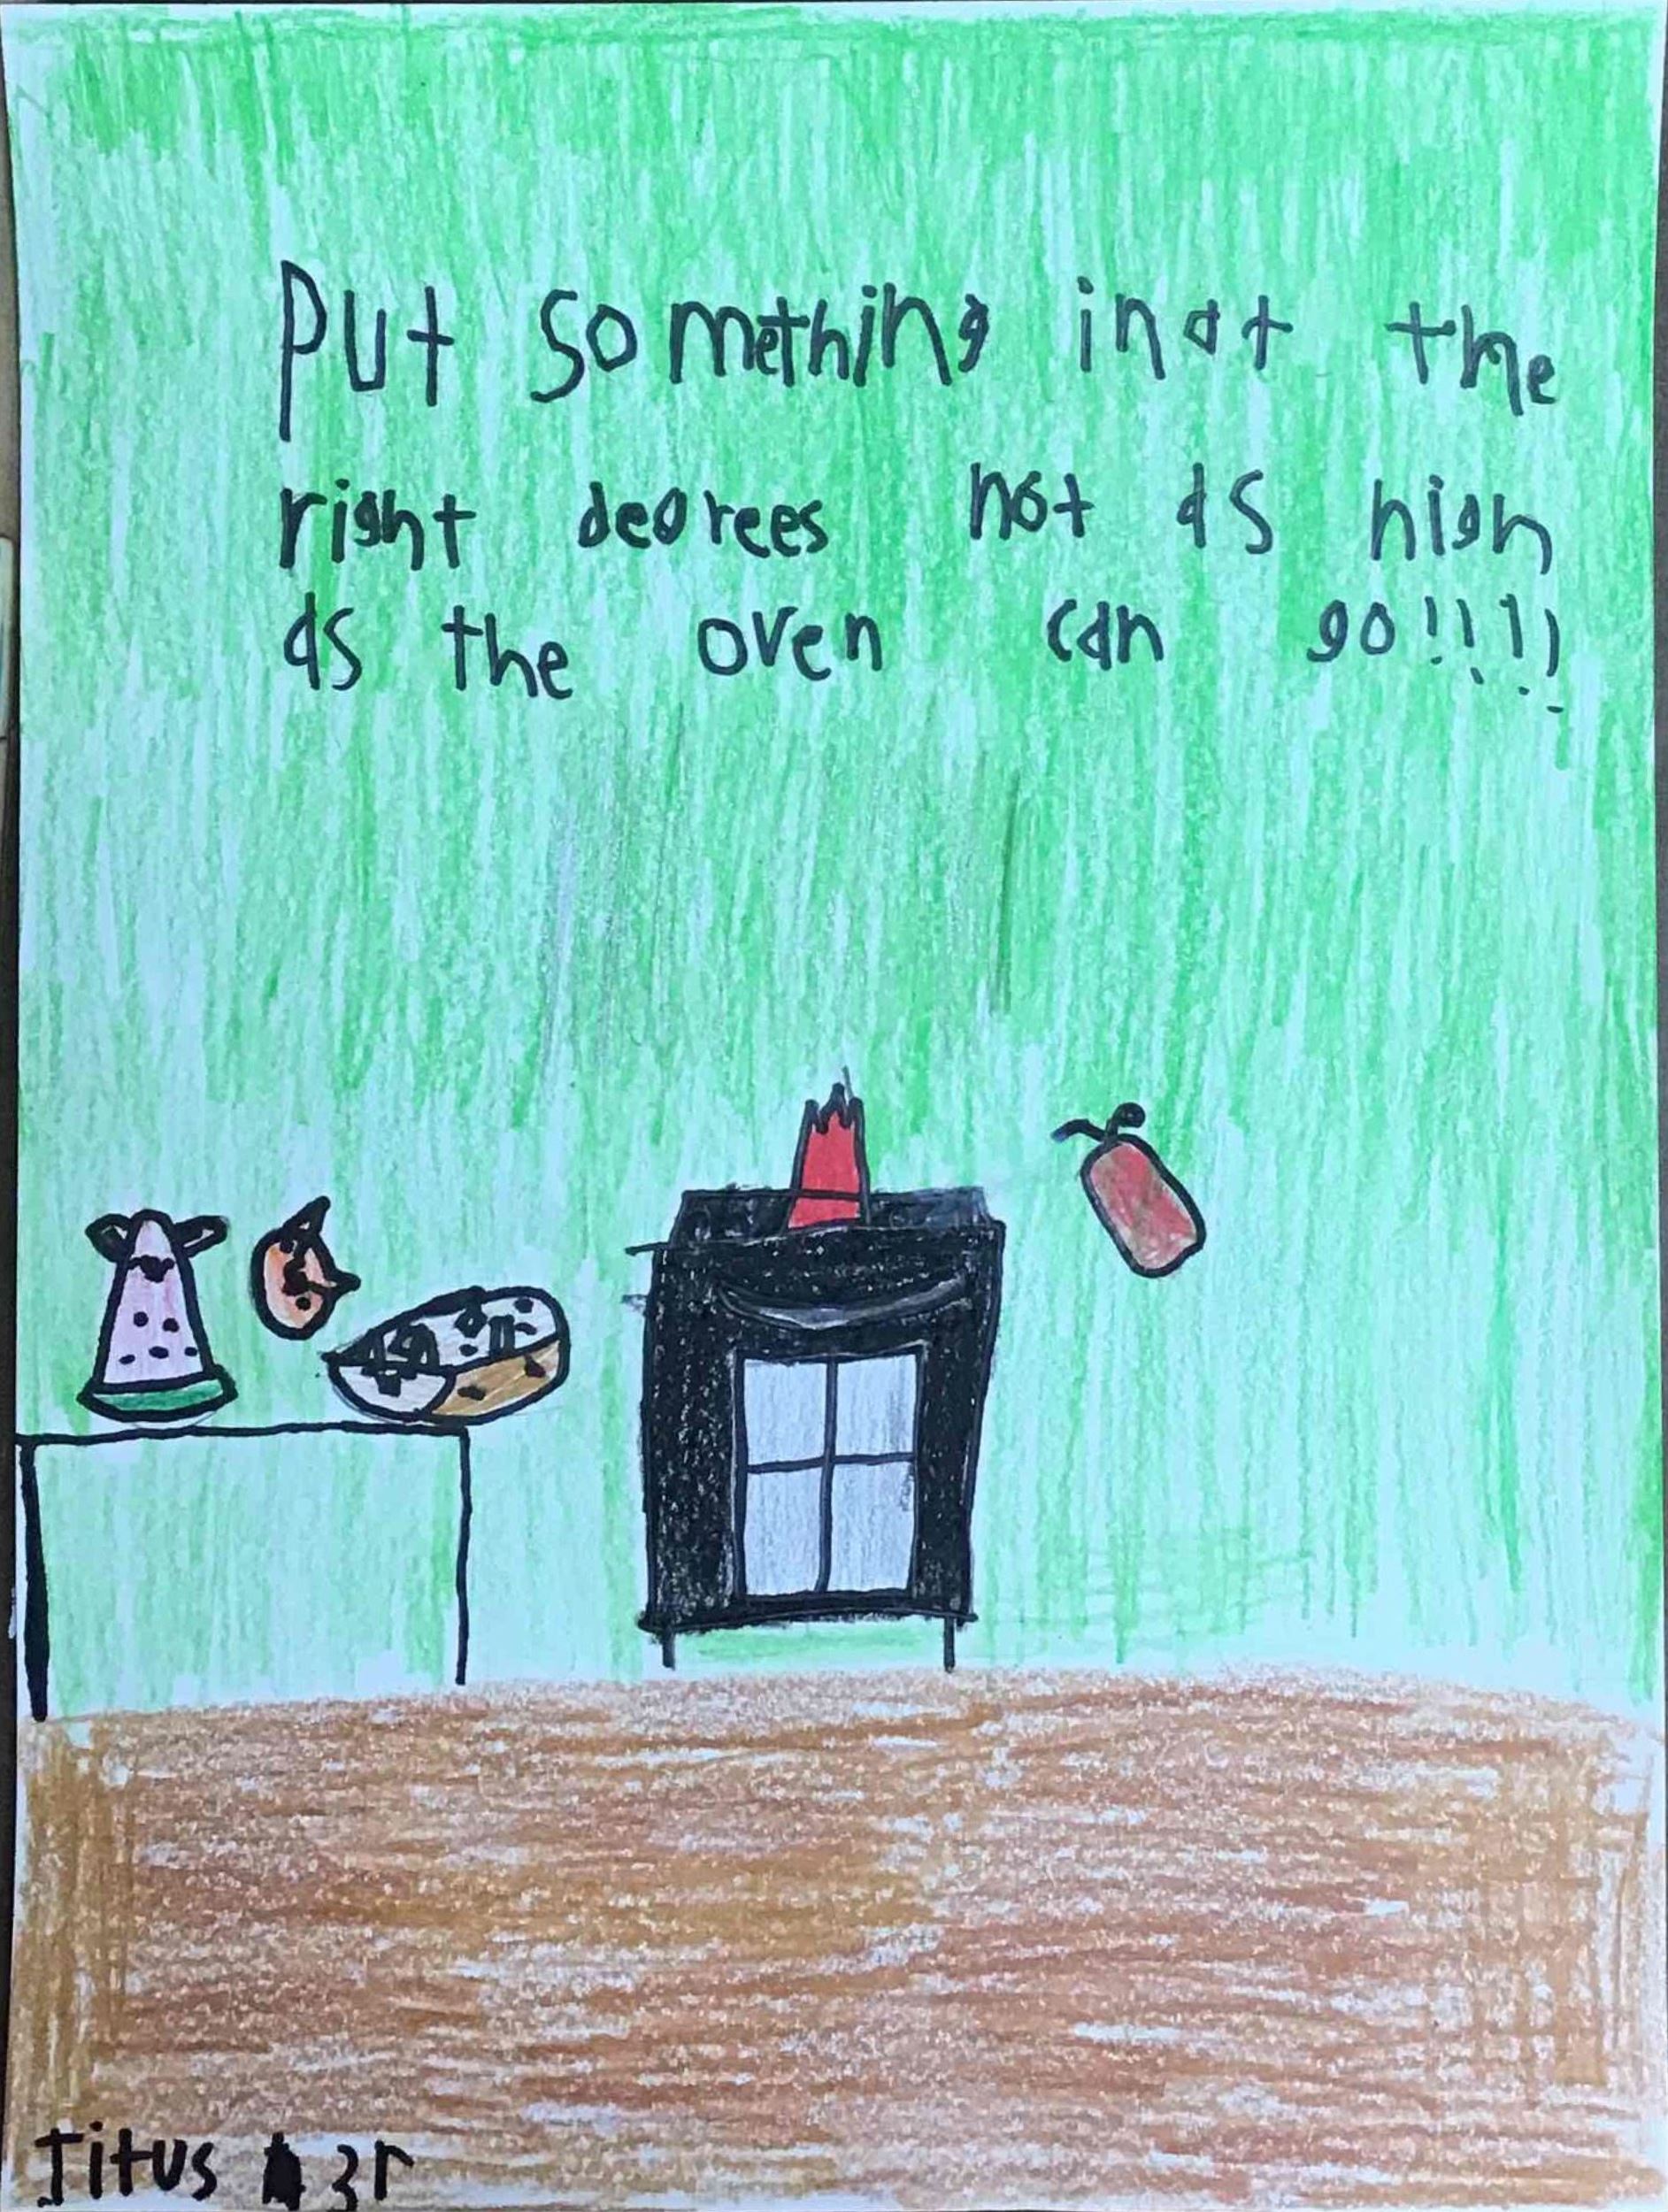 Put something inat the
right degrees not as high
as the oven can go!!!!!
Titus